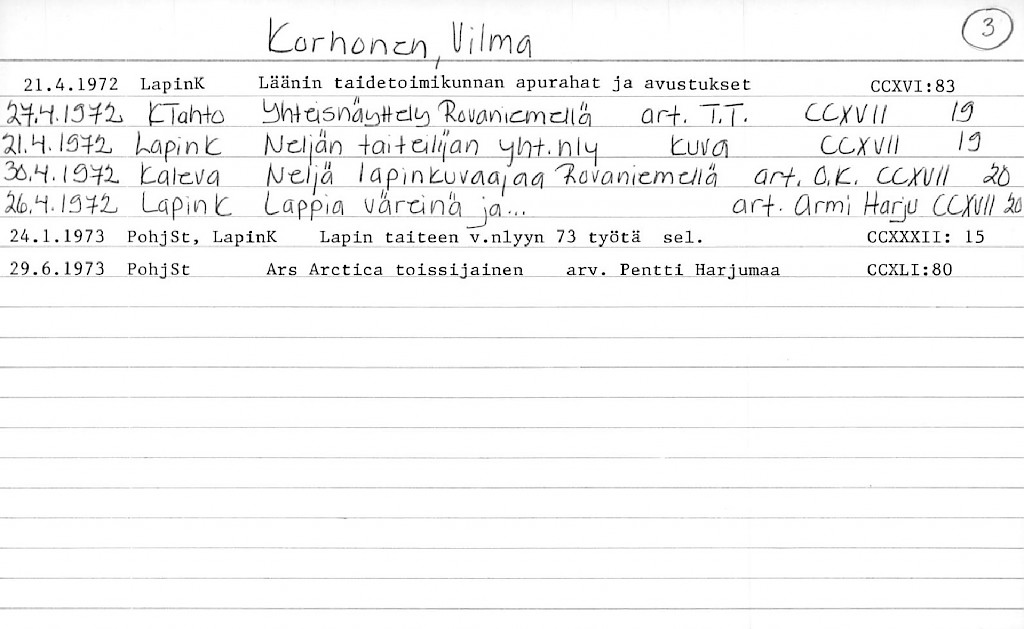 Korhonen, Vilma
3
21.4.1972 LapinK Läänin taidetoimikunnan apurahat ja avustukset CCXVI:83
27.4.1972 KTahto Yhteisnäyttely Rovaniemellä art. T.T. CCXVII 19
21.4.1972 LapinK Neljän taiteilijan yht.nly kuva CCXVII 19
30.4.1972 Kaleva Neljä lapinkuvaajaa Rovaniemellä art. O.K. CCXVII 20
26.4.1972 LapinK Lappia väreinä ja... art. Armi Harju CCXVII 20
24.1.1973 PohjSt, LapinK Lapin taiteen v.nlyyn 73 työtä sel. CCXXXII: 15
29.6.1973 PohjSt Ars Arctica toissijainen arv. Pentti Harjumaa CCXLI:80